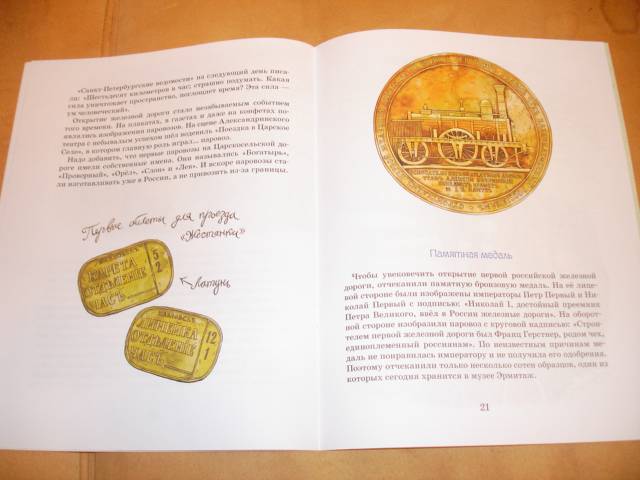 «Санкт-Петербургские ведомости» на следующий день писа-
ли: «Шестьдесят километров в час; страшно подумать. Какая
сила уничтожает пространство, поглощает время? Эта сила —
ум человеческий».
Открытие железной дороги стало незабываемым событием
того времени. На плакатах, в газетах и даже на конфетах по-
явились изображения паровозов. На сцене Александринского
театра с небывалым успехом шёл водевиль «Поездка в Царское
Село», в котором главную роль играл... паровоз.
Надо добавить, что первые паровозы на Царскосельской до-
роге имели собственные имена. Они назывались «Богатырь»,
«Проворный», «Орёл», «Слон» и «Лев». И вскоре паровозы ста-
ли изготавливать уже в России, а не привозить из-за границы.
Первые билеты для проезда
«Жестянки»
Латунь
КАРЕТА
ОТДѢЛЕНIЕ
ЧАСЪ
5
2
ЛИНЕЙКА
ОТДѢЛЕНIЕ
ЧАСЪ
12
1
Памятная медаль
Чтобы увековечить открытие первой российской железной
дороги, отчеканили памятную бронзовую медаль. На её лице-
вой стороне были изображены императоры Петр Первый и Ни-
колай Первый с подписью: «Николай I, достойный преемник
Петра Великого, ввёл в России железные дороги». На оборот-
ной стороне изобразили паровоз с круговой надписью: «Строи-
телем первой железной дороги был Франц Герстнер, родом чех,
единоплеменный россиянам». По неизвестным причинам ме-
даль не понравилась императору и не получила его одобрения.
Поэтому отчеканили только несколько сотен образцов, один из
которых сегодня хранится в музее Эрмитаж.
21